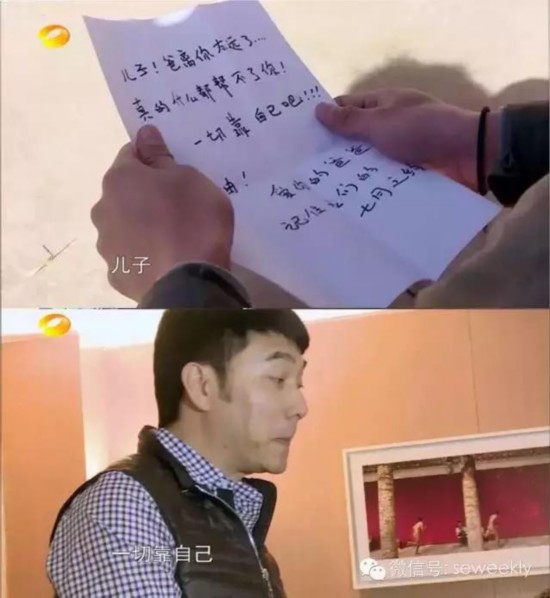 儿子！爸离你太远了…
真的什么都帮不了你！
一切靠自己吧!!!
爱你的爸爸
记住我们的
儿子
一切靠自己
微信号: seweekly